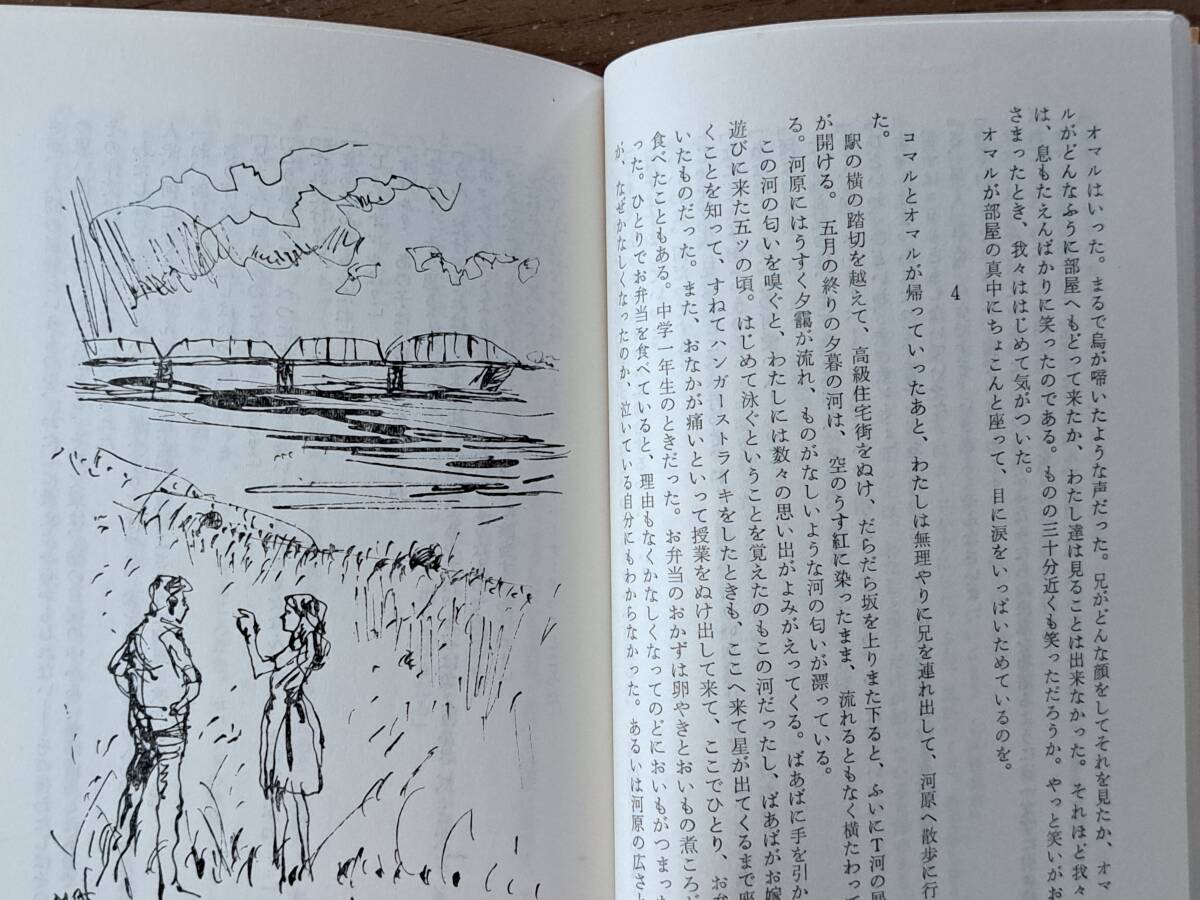 オマルはいった。まるで烏が啼いたような声だった。兄がどんな顔をしてそれを見たか、オマ
ルがどんなふうに部屋へもどって来たか、わたし達は見ることは出来なかった。それほど我々
は、息もたえんばかりに笑ったのである。もの三十分近くも笑っただろうか。やっと笑いがお
さまったとき、我々ははじめて気がついた。
オマルが部屋の真中にちょこんと座って、目に涙をいっぱいためているのを。
4
コマルとオマルが帰っていったあと、わたしは無理やりに兄を連れ出して、河原へ散歩に行
た。
駅の横の踏切を越えて、高級住宅街をぬけ、だらだら坂を上りまた下ると、ふいにT河の
が開ける。五月の終りの夕暮の河は、空のうす紅に染ったまま、流れるともなく横たわって
る。河原にはうすく夕靄が流れ、ものがなしいような河の匂いが漂っている。
この河の匂いを嗅ぐと、わたしには数々の思い出がよみがえってくる。ばあばに手を引か
遊びに来た五ツの頃。はじめて泳ぐということを覚えたのもこの河だったし、ばあばがお嫁
くことを知って、すねてハンガーストライキをしたときも、ここへ来て星が出てくるまで座
いたものだった。また、おなかが痛いといって授業をぬけ出して来て、ここでひとり、お弁
食べたこともある。中学一年生のときだった。お弁当のおかずは卵やきとおいもの煮ころ
った。ひとりでお弁当を食べていると、理由もなくかなしくなってのどにおいもがつまった
が、なぜかなしくなったのか、泣いている自分にもわからなかった。あるいは河原の広さ